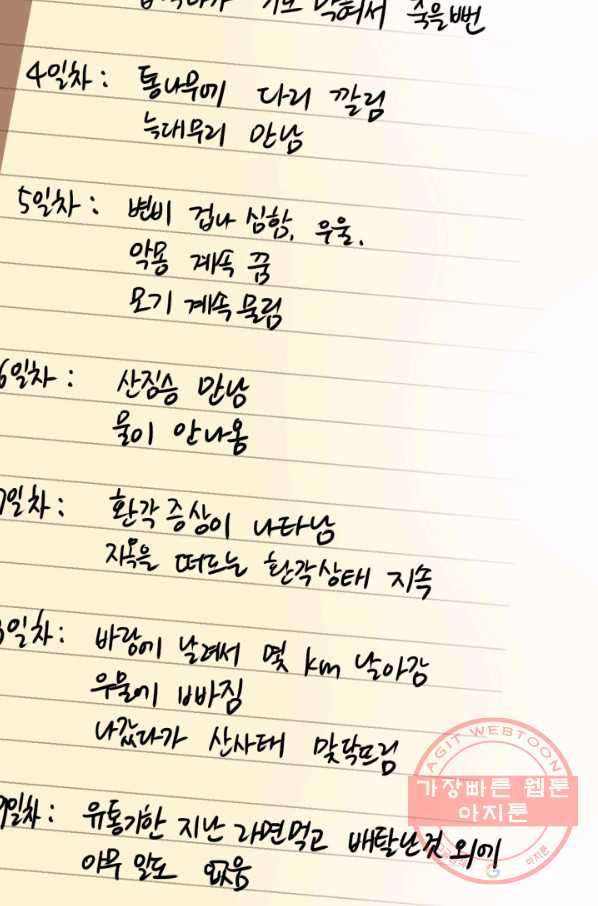 막혀서 죽을뻔
4일차: 통나무에 다리 깔림
늑대무리 만남
5일차: 변비 겁나 심함, 우울.
악몽 계속 꿈
모기 계속 물림
6일차: 산짐승 만남
물이 안나옹
7일차: 환각 증상이 나타남
지옥을 떠드는 환각상태 지속
8일차: 바람에 날려서 몇 km 날아감
우물에 빠짐
나갔다가 산사태 맞닥뜨림
9일차: 유통기한 지난 라면먹고 배탈난것 외에
아무 일도 없음
AGIT WEBTOON
가장빠른 웹툰
아지툰
아지툰